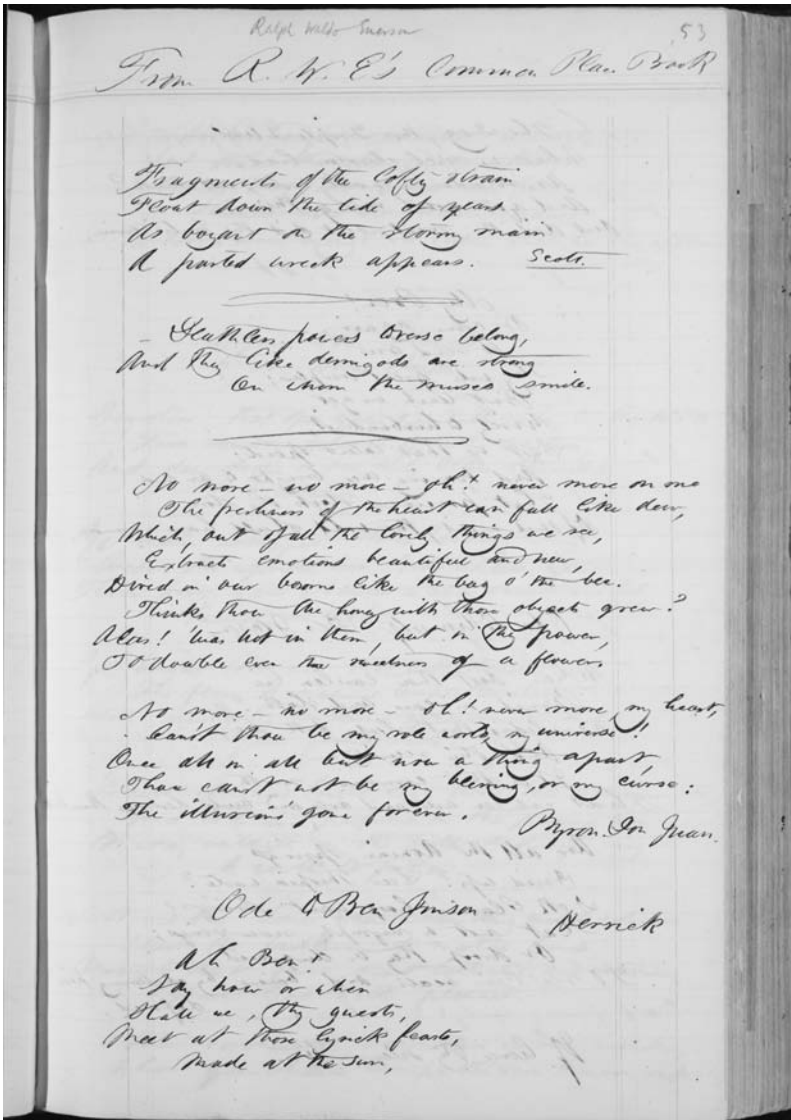 Ralph Waldo Emerson
53
From R. W. E's Common Place Book
Fragments of the lofty strain
Float down the tide of years
As buoyant on the stormy main
A parted wreck appears. Scott.
– Deathless powers to verse belong,
And they like demigods are strong
On whom the muses smile.
No more – no more – Oh! never more on me
The freshness of the heart can fall like dew,
Which, out of all the lovely things we see,
Extracts emotions beautiful and new,
Hived in our bosoms like the bag o' the bee.
Thinks thou the honey with those objects grew?
Alas! 'twas not in them, but in thy power,
To double even the sweetness of a flower.
No more – no more – Oh! never more, my heart,
Canst thou be my sole world, my universe!
Once all in all but now a thing apart,
Thou canst not be my blessing, or my curse:
The illusion's gone forever.
Byron. Don Juan.
Ode to Ben Jonson
Herrick
Ah Ben!
Say how or when
Shall we, thy guests,
Meet at those lyrick feasts,
Made at the Sun,